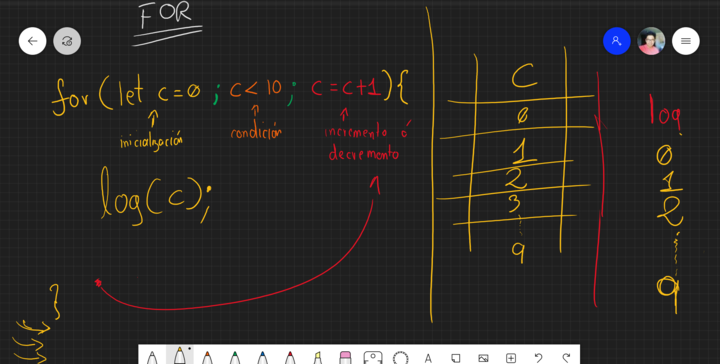 FOR
for (let c=0 ; c<10 ; c=c+1){
inicialización
condición
incremento ó
decremento
log(c);
}
C
0
1
2
3
9
log
0
1
2
9
A